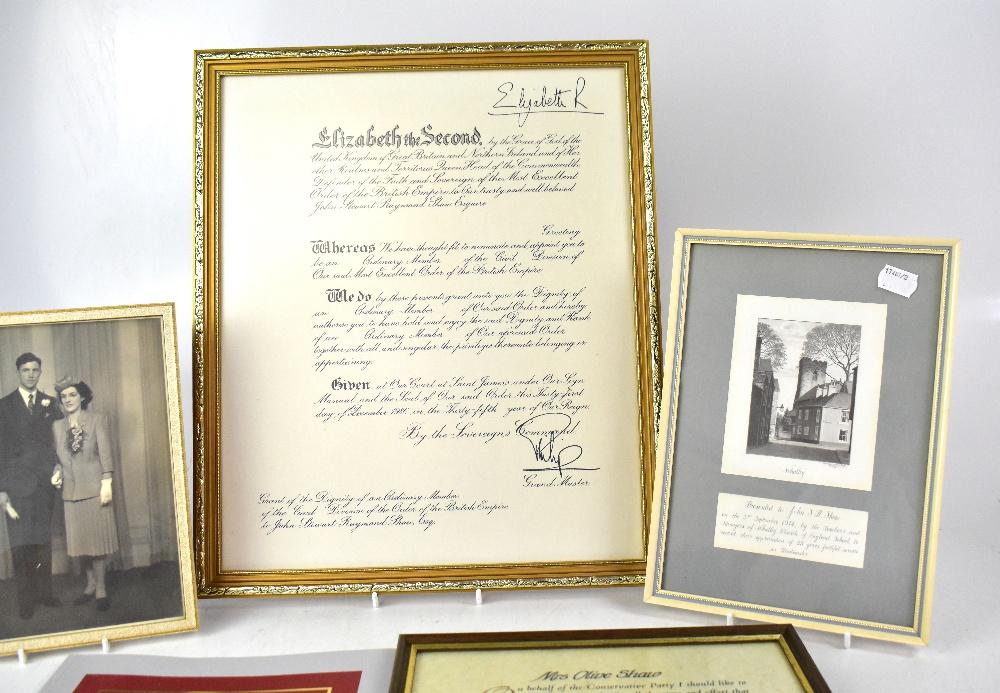 Elizabeth R
Elizabeth the Second, by the Grace of God of the
United Kingdom of Great Britain and Northern Ireland and of Her
other Realms and Territories Queen, Head of the Commonwealth,
Defender of the Faith and Sovereign of the Most Excellent
Order of the British Empire to Our trusty and well beloved
John Stewart Raymond Shaw Esquire
Greeting
Whereas We have thought fit to nominate and appoint you to
be an Ordinary Member of the Civil Division of
Our said Most Excellent Order of the British Empire
We do by these presents grant unto you the Dignity of
an Ordinary Member of Our said Order and hereby
authorise you to have hold and enjoy the said Dignity and Rank
of an Ordinary Member of Our aforesaid Order
together with all and singular the privileges thereunto belonging or
appertaining.
Given at Our Court at Saint James's under Our Sign
Manual and the Seal of Our said Order this Thirty-first
day of December 1986 in the Thirty-fifth year of Our Reign.
By the Sovereign's Command.
Philip
Grand Master
Grant of the Dignity of an Ordinary Member
of the Civil Division of the Order of the British Empire
to John Stewart Raymond Shaw, Esq.
Whalley
Presented to John S. R. Shaw
on the September by the Teachers and
Managers of Whalley Church of England School to
record their appreciation of 25 years faithful service
as Headmaster
Mrs Olive Shaw
On behalf of the Conservative Party I should like to
effort that